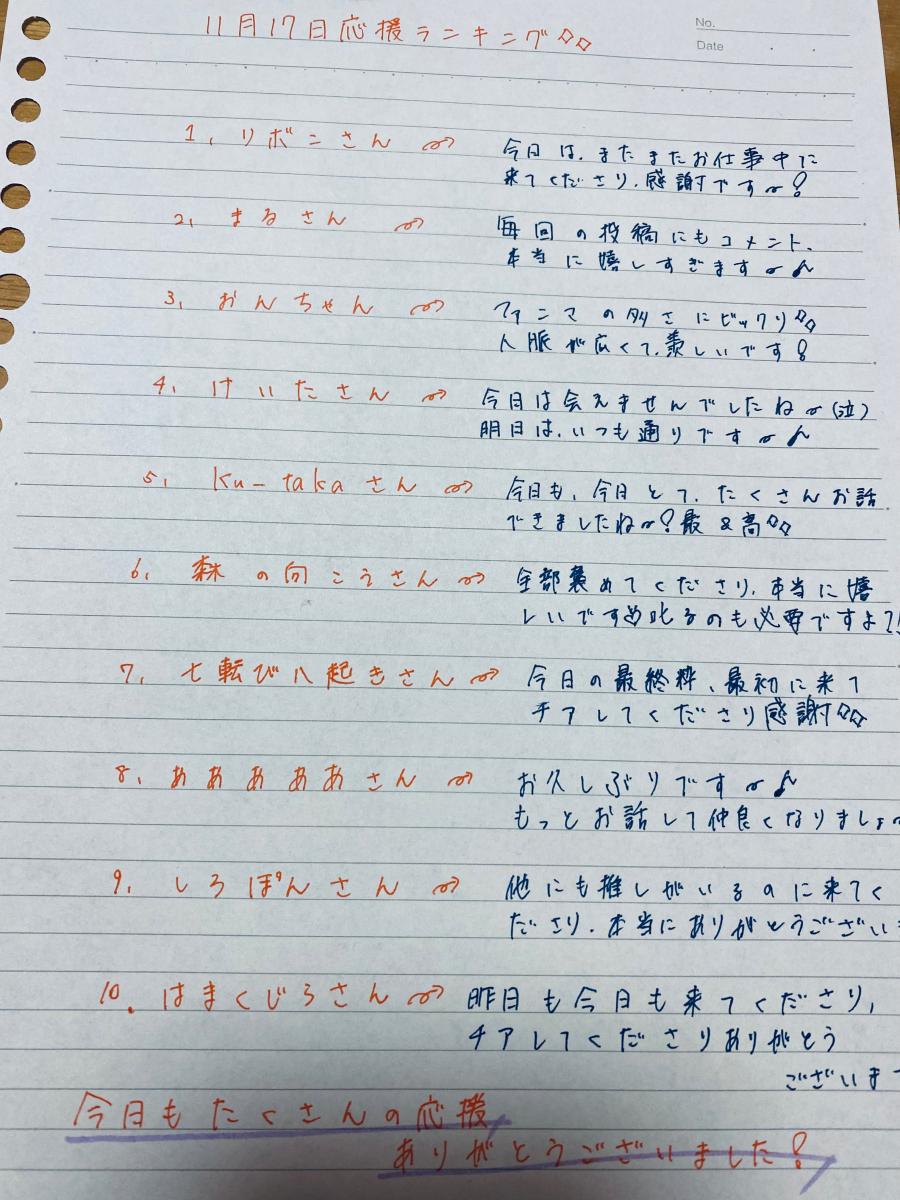 No.
Date
11月17日応援ランキング
1. リボンさん
今日は、またまたお仕事中に
来てくださり、感謝です〜!
2. まるさん
毎回の投稿にもコメント、
本当に嬉しすぎます〜♪
3. おんちゃん
ファンマの多さにビックリ
人脈が広くて、羨しいです!
4. けいたさん
今日は会えませんでしたね〜(泣)
明日は、いつも通りです〜♪
5. ku-takaさん
今日も、今日とて、たくさんお話
できましたね〜?最&高
6. 森の向こうさん
全部褒めてくださり、本当に嬉
しいです 叱るのも必要ですよ?!
7. 七転び八起きさん
今日の最終粋、最初に来て
チアしてくださり感謝
8. あああああさん
お久しぶりです〜♪
もっとお話して仲良くなりましょ〜
9. しろぽんさん
他にも推しがいるのに来てく
ださり、本当にありがとうござい
10. はまくじろさん
昨日も今日も来てくださり、
チアしてくださりありがとう
ございま
今日もたくさんの応援
ありがとうございました!